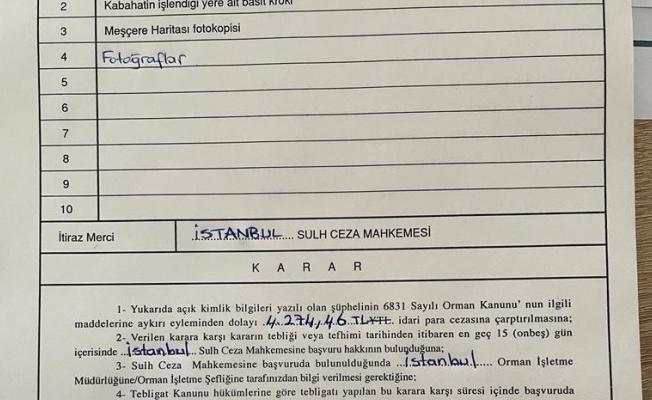 2 Kabahatin işlendiği yere ait basit kroki
3 Meşcere Haritası fotokopisi
4 Fotoğraflar
5
6
7
8
9
10
İtiraz Merci İSTANBUL SULH CEZA MAHKEMESİ
K A R A R
1- Yukarıda açık kimlik bilgileri yazılı olan şüphelinin 6831 Sayılı Orman Kanunu' nun ilgili
maddelerine aykırı eyleminden dolayı .4.274,46 TLYTL idari para cezasına çarptırılmasına;
2- Verilen karara karşı kararın tebliği veya tefhimi tarihinden itibaren en geç 15 (onbeş) gün
içerisinde ...istanbul... Sulh Ceza Mahkemesine başvuru hakkının bulunduğuna;
3- Sulh Ceza Mahkemesine başvuruda bulunulduğunda ...istanbul..... Orman İşletme
Müdürlüğüne/Orman İşletme Şefliğine tarafınızdan bilgi verilmesi gerektiğine;
4- Tebligat Kanunu hükümlerine göre tebligatı yapılan bu karara karşı süresi içinde başvuruda